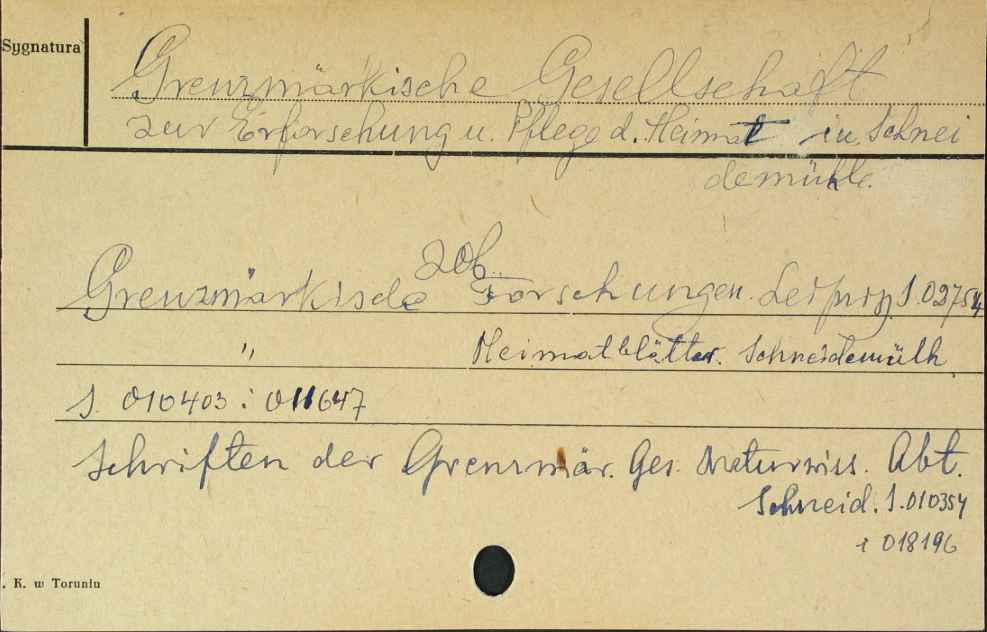 Sygnatura
Grenzmärkische Gesellschaft
zur Erforschung u. Pflege d. Heimat in Schnei
demühle.
zob.
Grenzmärkische Forschungen. Leipzig S.02754
" Heimatblätter. Schneidemülh.
S. 010403 i 011647
Schriften der Grenzmär. Ges. Naturwiss. Abt.
Schneid. S.010354
i 018196
. K. w Toruniu